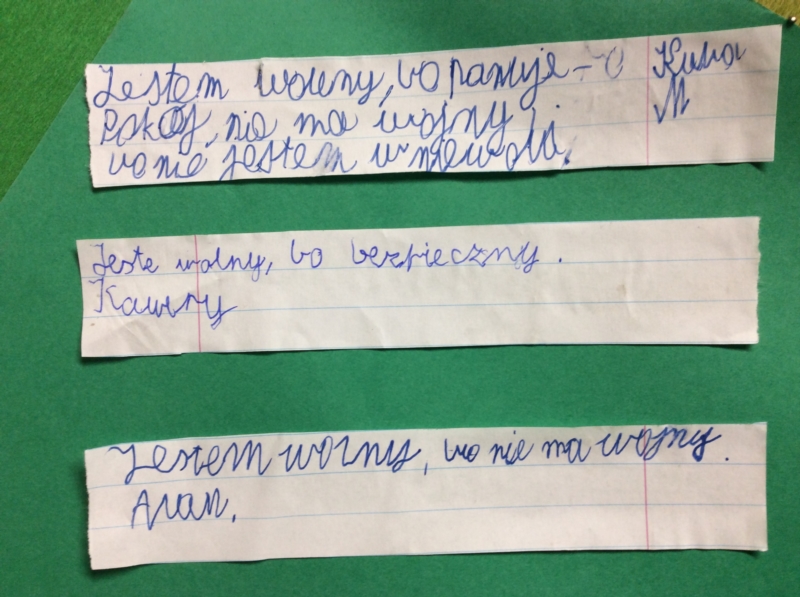 Jestem wolny, bo panuje
Pokój, nie ma wojny
bo nie jestem w niewoli.
Kuba
M
Jeste wolny, bo bezpieczny.
Jestem wolny, bo nie ma wojny.
Alan.